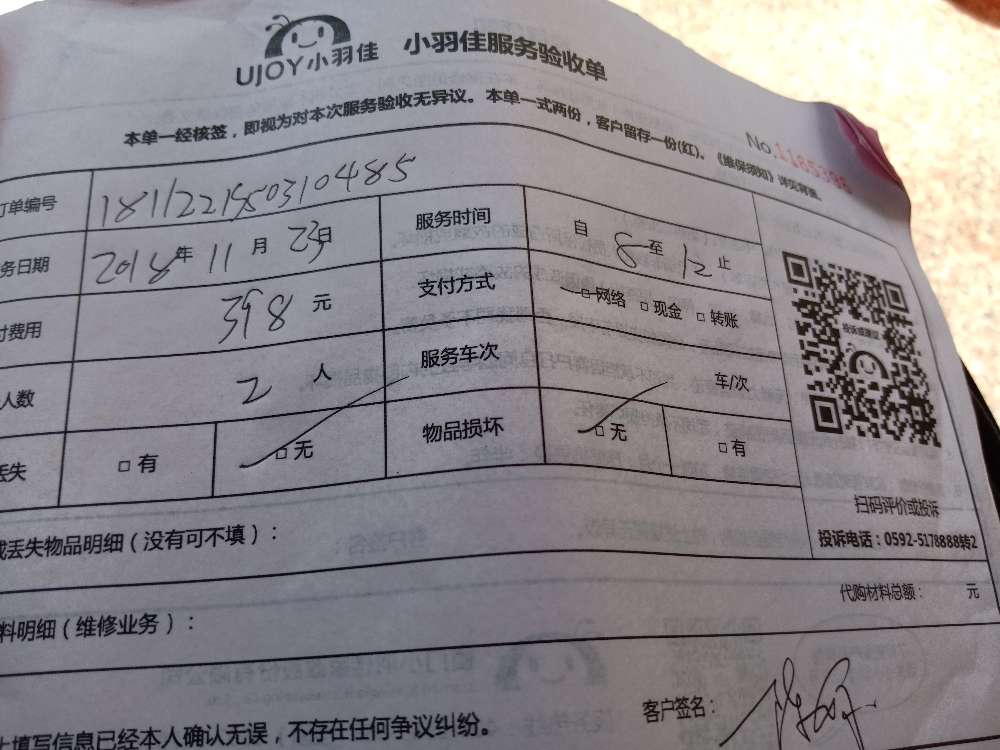 UJOY小羽佳 小羽佳服务验收单
本单一经核签，即视为对本次服务验收无异议。本单一式两份，客户留存一份(红)。《维保须知》详见背面。
No.1165398
订单编号 1811221950310485
务日期 2018年11月23日 服务时间 自8至12止
付费用 398元 支付方式 □网络 □现金 □转账
人数 2人 服务车次 车/次
丢失 □有 □无 物品损坏 □无 □有
投诉或建议
扫码评价或投诉
投诉电话：0592-5178888转2
或丢失物品明细（没有可不填）：
代购材料总额： 元
料明细（维修业务）：
客户签名：
上填写信息已经本人确认无误，不存在任何争议纠纷。